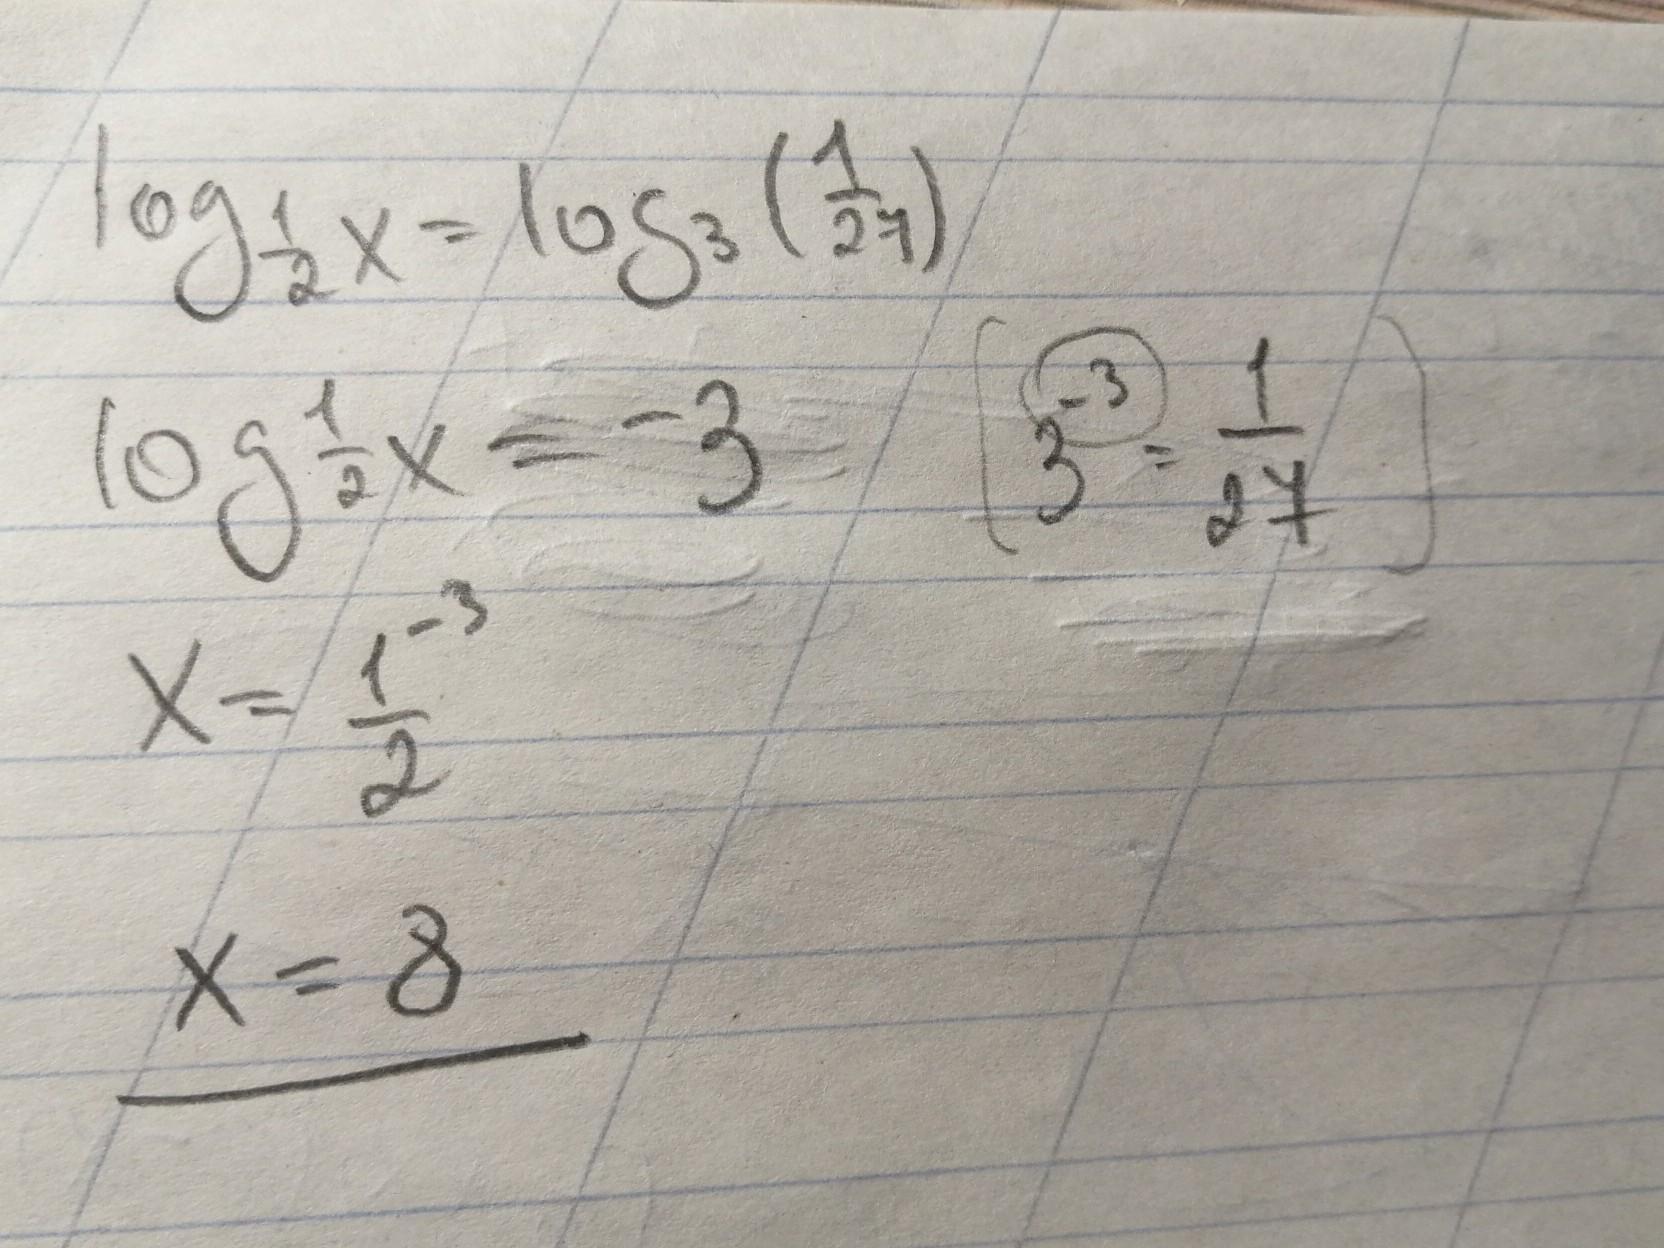 log_{1/2} x = log_3 (1/27)
log 1/2 x = -3 (3^{-3} = 1/27)
x = 1/2^{-3}
x = 8